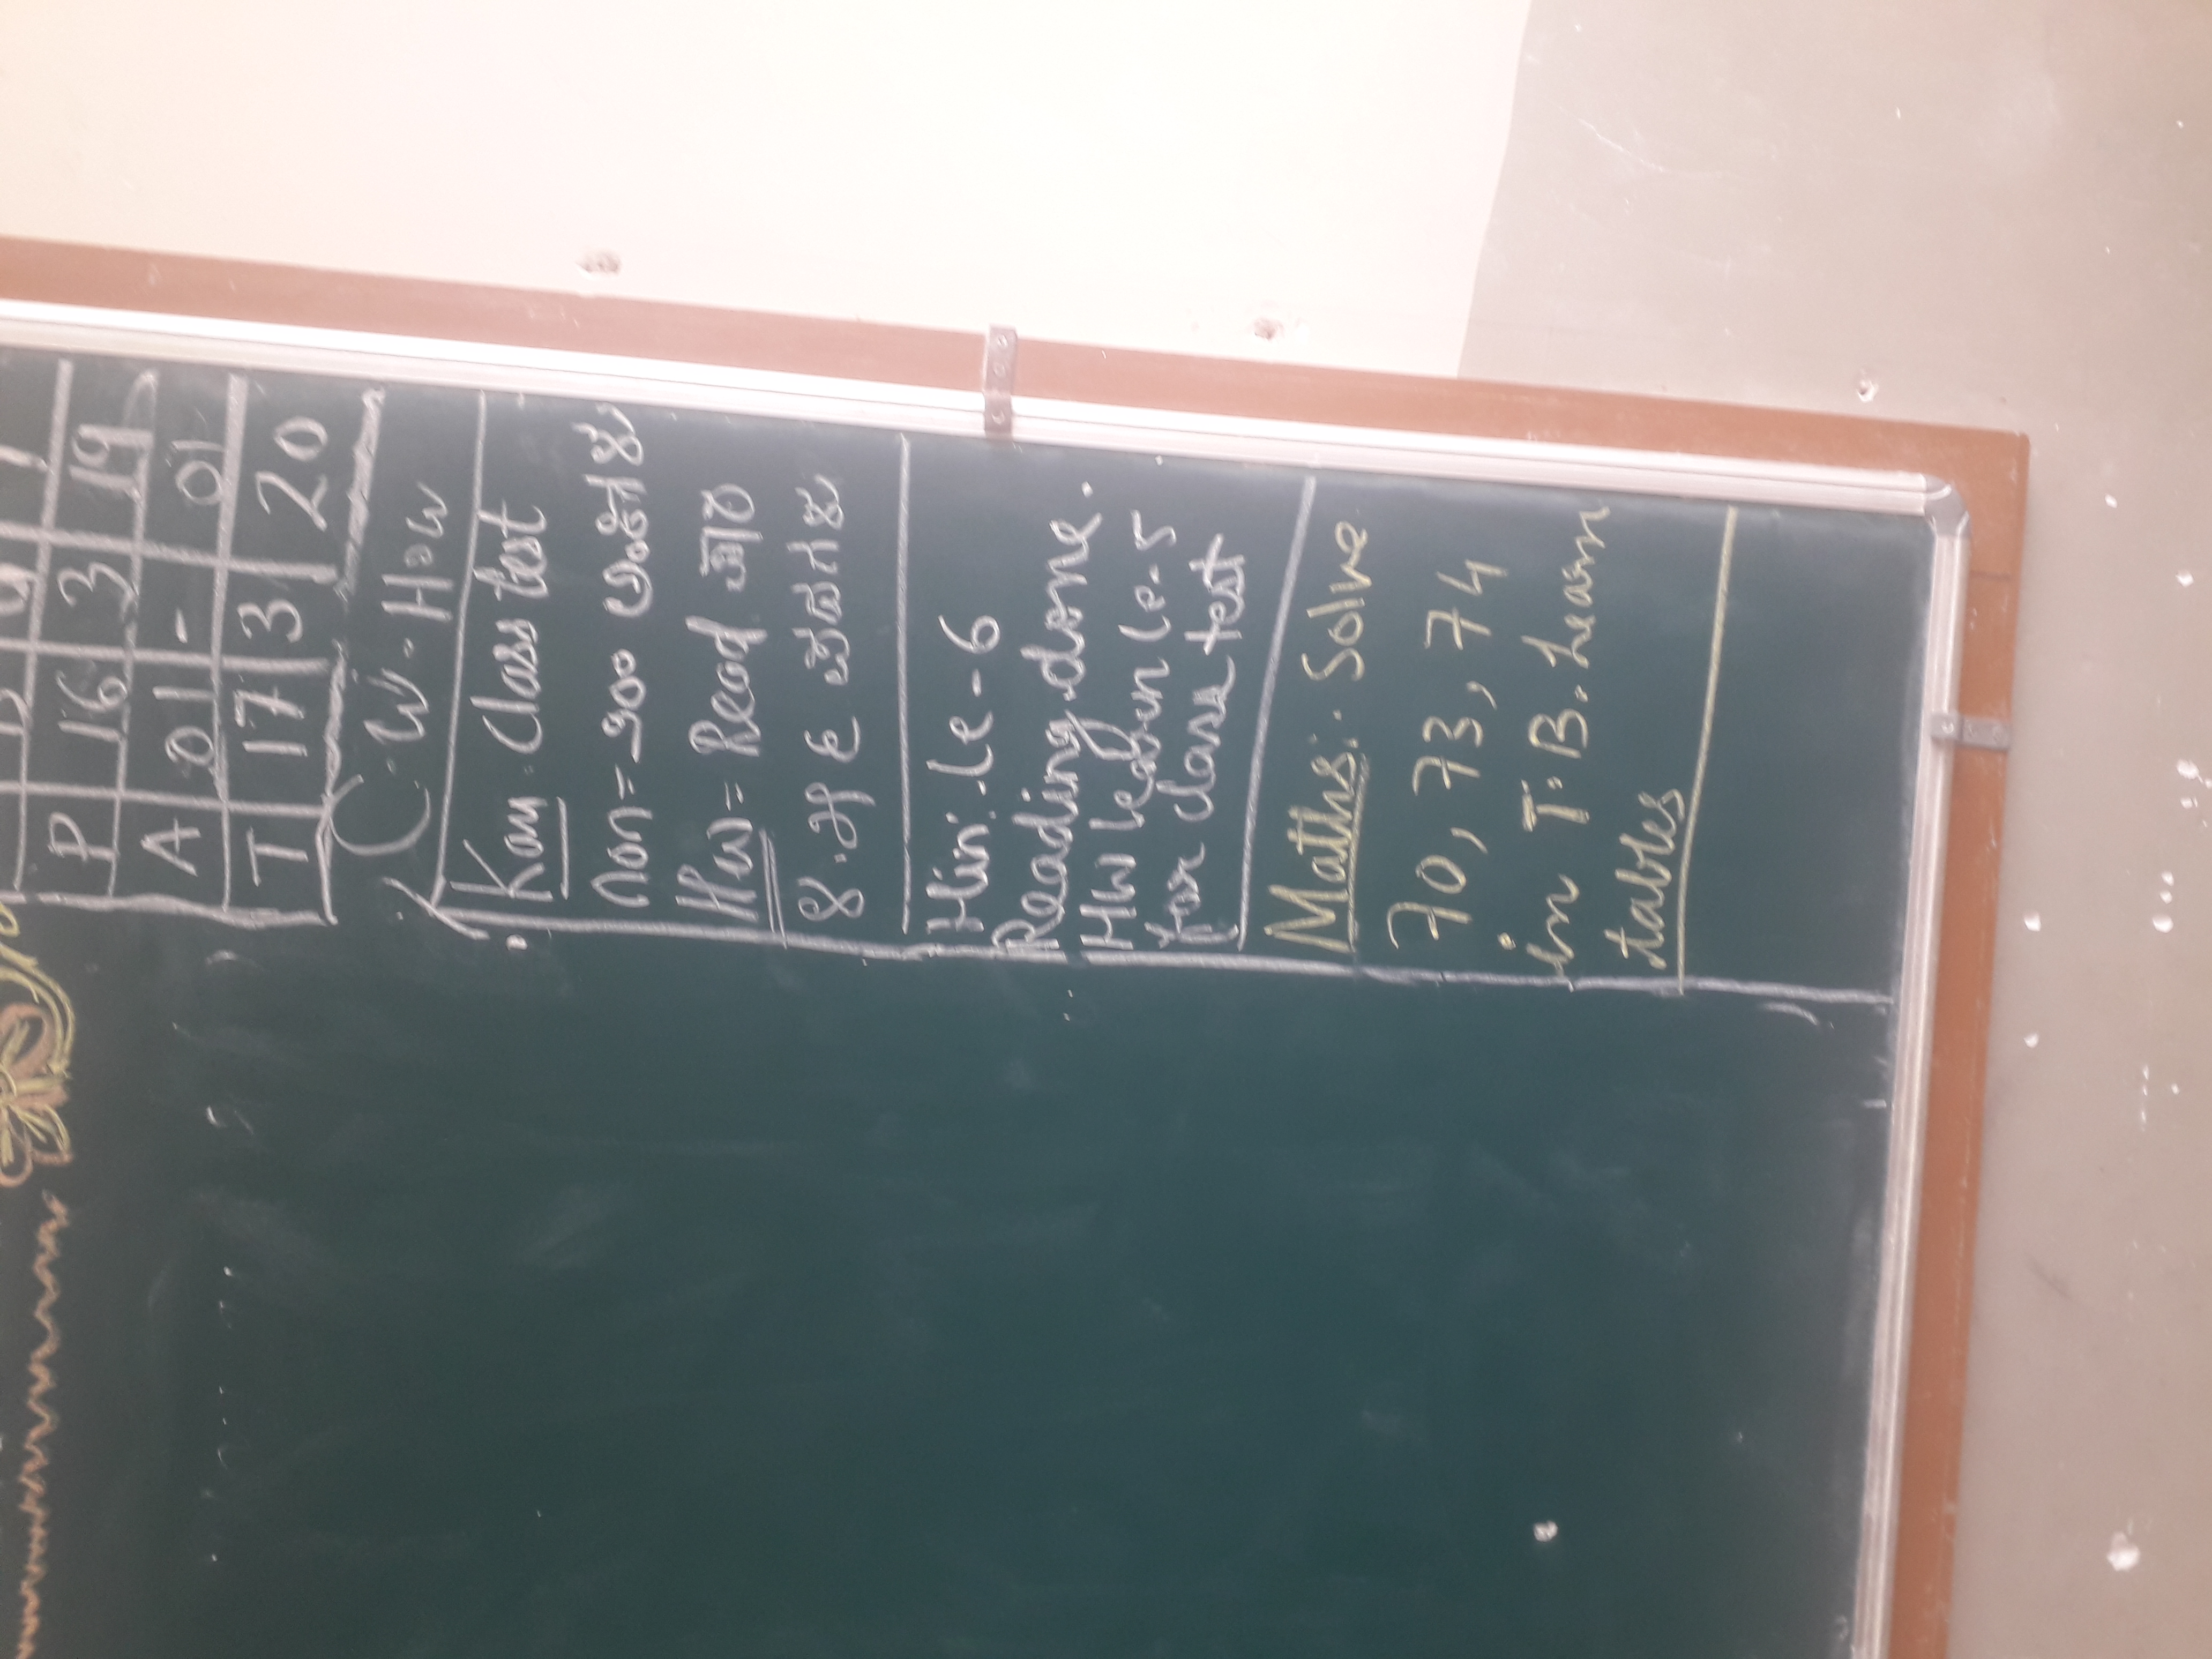 P 16 3 19
A 01 - 01
T 17 3 20
C.W - H.W
Kan Class test
non = ೨೦೦ ಅಂಕಗಳು
HW = Read
Hin: Le-6
Reading done.
HW learn Le-5
for class test
Maths: Solve
70, 73, 74
in T.B. Learn
tables